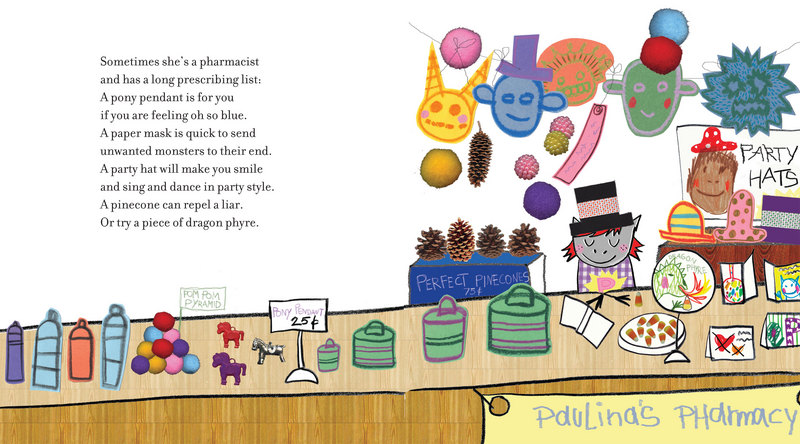 Sometimes she's a pharmacist
and has a long prescribing list:
A pony pendant is for you
if you are feeling oh so blue.
A paper mask is quick to send
unwanted monsters to their end.
A party hat will make you smile
and sing and dance in party style.
A pinecone can repel a liar.
Or try a piece of dragon phyre.
PARTY
HATS
PERFECT PINECONES
75¢
P
DRAGON
POM POM
PYRAMID
PONY PENDANT
25¢
PauLina's PHarmacy